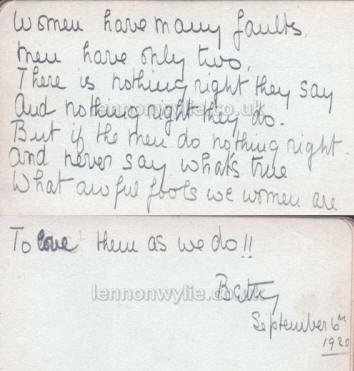 Women have many faults,
men have only two,
There is nothing right they say
And nothing right they do.
But if the men do nothing right
and never say what's true
What awful fools we women are
To love them as we do!!
lennonwylie.co.uk
Betty
September 6th
1920